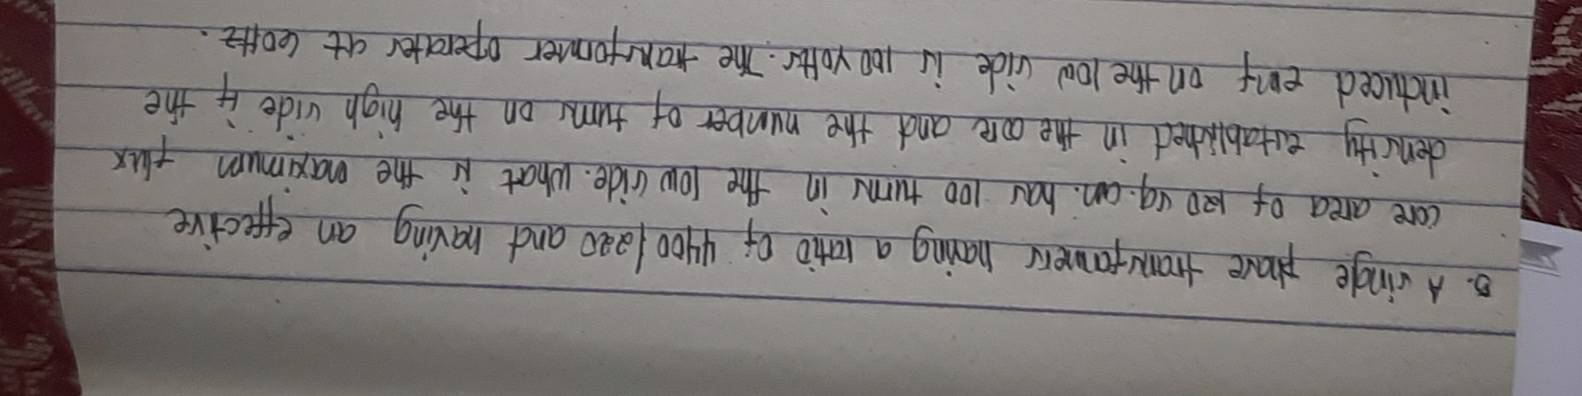 5. A single phase transformers having a ratio of 4400/220 and having an effective
core area of 120 sq. cm. has 100 turns in the low side. what is the maximum flux
density established in the core and the number of turns on the high side if the
induced emf on the low side is 100 volts. The transformer operates at 60Hz.